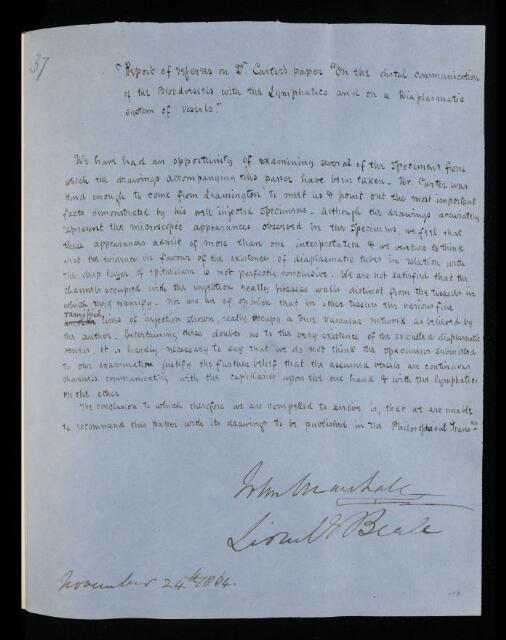 37
"Report of referees on Dr. Carter's paper "On the distal communication
of the Bloodvessels with the Lymphatics and on a Diaplasmatic
system of vessels."
We have had an opportunity of examining several of the specimens from
which the drawings accompanying this paper have been taken. Dr. Carter was
kind enough to come from Leamington to meet us & point out the most important
facts demonstrated by his well injected specimens. Although the drawings accurately
represent the microscopic appearances observed in the specimens, we feel that
these appearances admit of more than one interpretation & we venture to think
that the evidence in favour of the existence of diaplasmatic tubes in relation with
the deep layer of epithelium is not perfectly conclusive. We are not satisfied that the
channels occupied with the injection really possess walls distinct from the tissues in
which they ramify. Nor are we of opinion that in other tissues the various fine
ramified
lines of injection shown, really occupy a true vascular network as believed by
the author. Entertaining these doubts as to the very existence of the so called diaplasmatic
vessels, it is hardly necessary to say that we do not think the specimens submitted
to our examination justify the further belief that the assumed vessels are continuous
channels communicating with the capillaries upon the one hand & with the lymphatics
on the other.
The conclusion to which therefore we are compelled to arrive is, that we are unable
to recommend this paper with its drawings to be published in the Philosophical Trans.ns
John Marshall
Lionel S Beale
November 24th 1864.